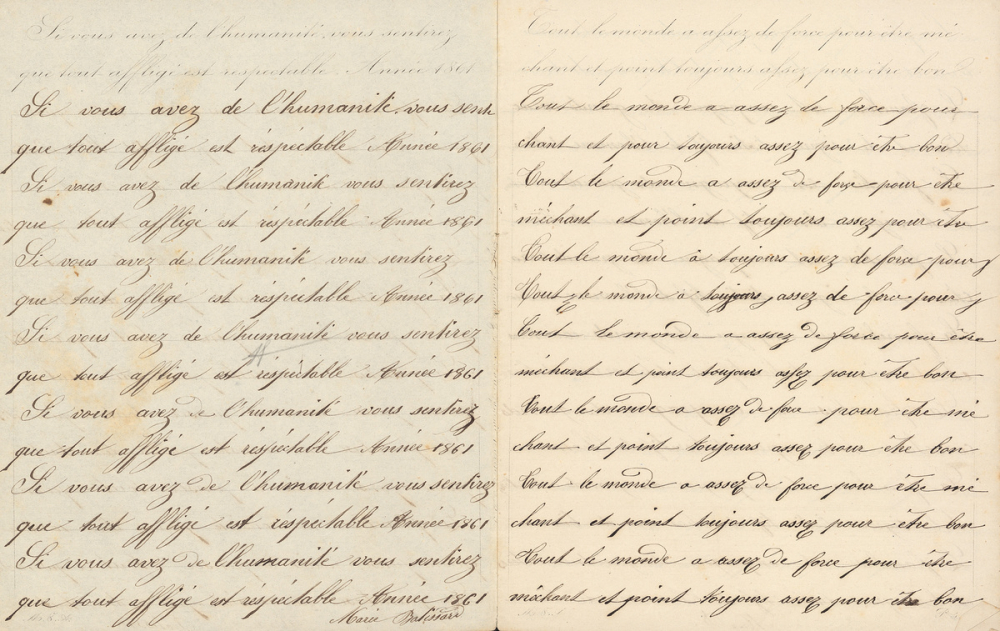 Si vous avez de l'humanité, vous sentirez
que tout affligé est respectable. Année 1861
Si vous avez de l'humanité. vous senti
que tout affligé est réspéctable Année 1861
Si vous avez de l'humanité vous sentirez
que tout affligé est réspéctable Année 1861
Si vous avez de l'humanité vous sentirez
que tout affligé est réspéctable Année 1861
Si vous avez de l'humanité vous sentirez
que tout affligé est réspéctable Année 1861
Si vous avez de l'humanité vous sentirez
que tout affligé est réspéctable Année 1861
Si vous avez de l'humanité vous sentirez
que tout affligé est réspéctable Année 1861
Si vous avez de l'humanité vous sentirez
que tout affligé est réspéctable Année 1861
Marie
Tout le monde a assez de force pour être mé
chant et point toujours assez pour être bon
Tout le monde a assez de force pour
chant et pour toujours assez pour être bon
Tout le monde a assez de force pour être
méchant et point toujours assez pour être
Tout le monde à toujours assez de force pour
Tout le monde a toujours assez de force pour
Tout le monde a assez de force pour être
méchant et point toujours assez pour être bon
Tout le monde a assez de force pour être mé
chant et point toujours assez pour être bon
Tout le monde a assez de force pour être mé
chant et point toujours assez pour être bon
Tout le monde a assez de force pour être
méchant et point toujours assez pour être bon